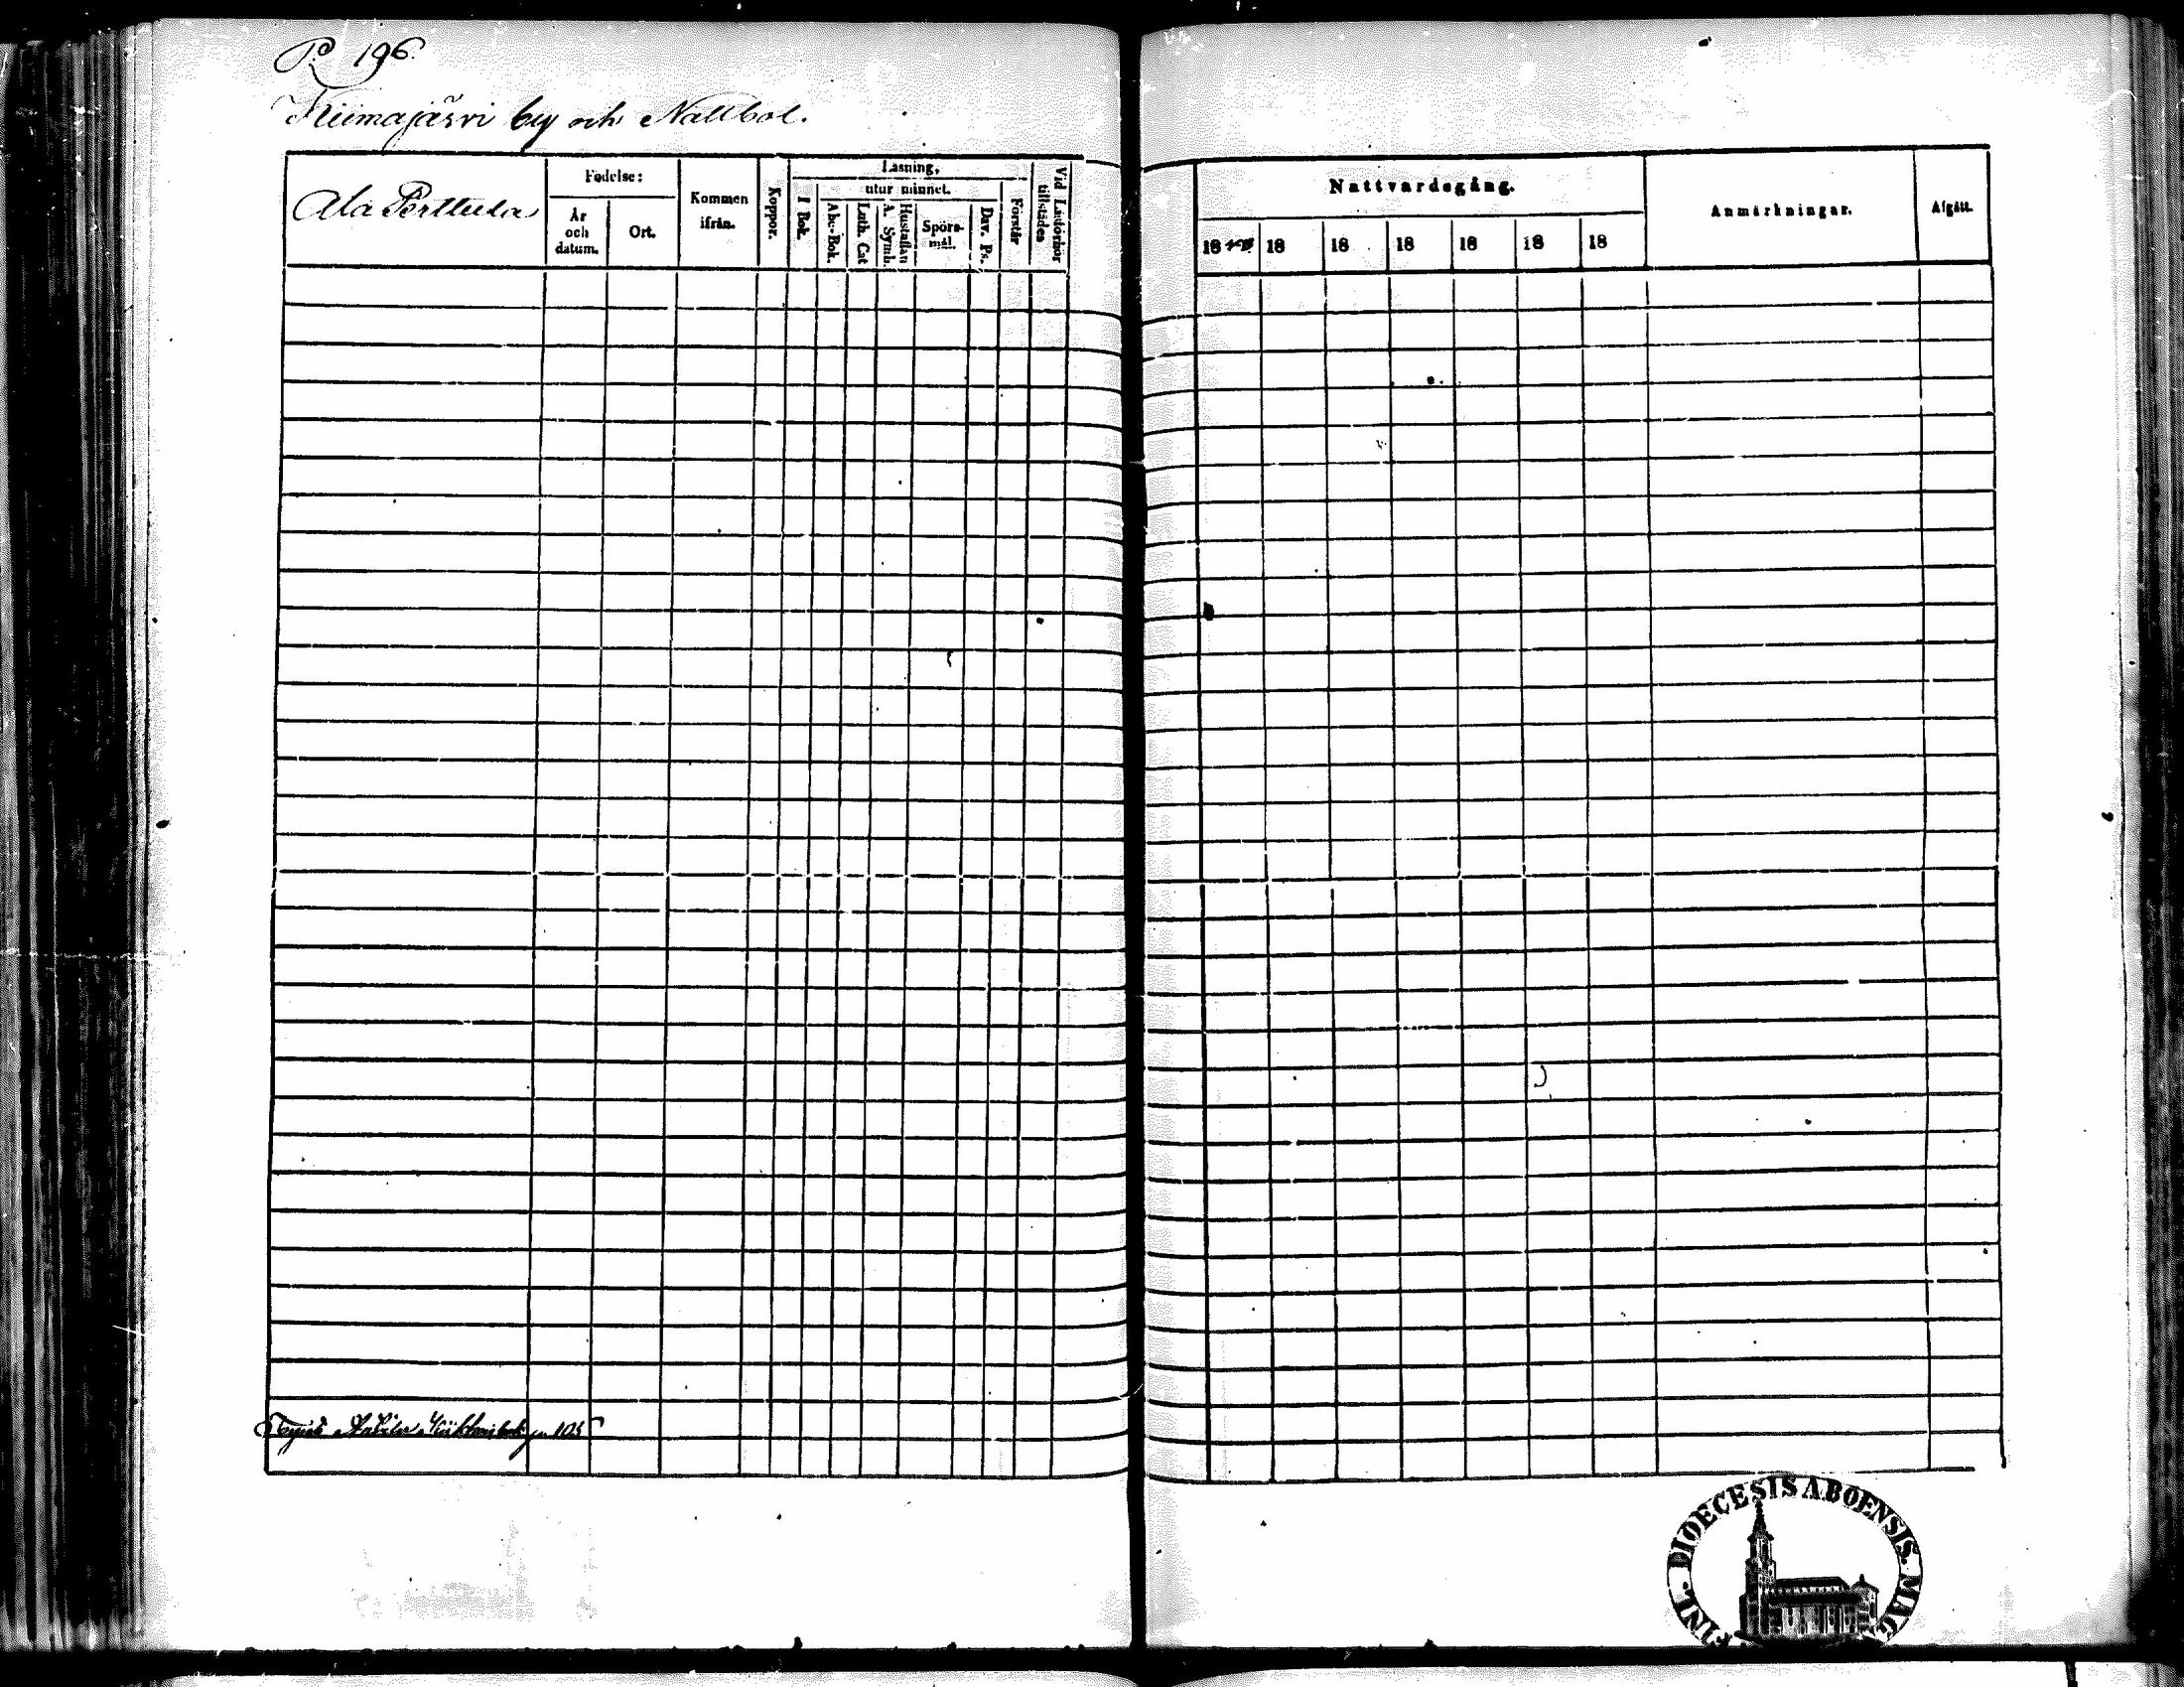 P. 196.
Kiimajärvi by och Nattbol.
Ala Perttula
Födelse:
År och datum.
Ort.
Kommen ifrån.
Koppor.
Läsning,
utur minnet.
I Bok.
Abc-Bok.
Luth. Cat
Hustaflan A. Symb.
Spörsmål.
Dav. Ps.
Förstår
Vid Läsförhör tillstädes
Nattvardsgång.
18 18 18 18 18 18 18
Anmärkningar.
Afgått.
p. 105
FINL. DIOECESIS ABOENSIS. MAG